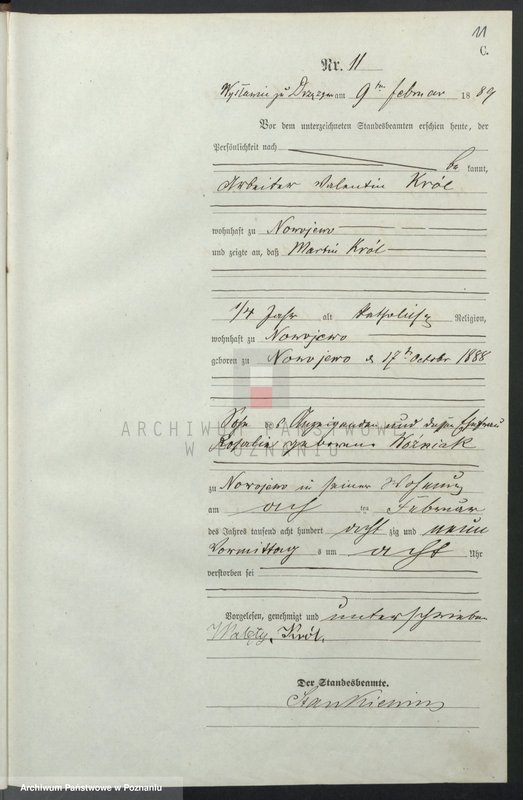 11
C.
Nr. 11
am 9ten Februar 1889
Vor dem unterzeichneten Standesbeamten erschien heute, der
Persönlichkeit nach
be kannt,
Arbeiter Valentin Król
wohnhaft zu Nowojewo
und zeigte an, daß Martin Król
1/4 Jahr alt katholisch Religion,
wohnhaft zu Nowojewo
geboren zu Nowojewo d 17ten October 1888
Sohn des Anzeigenden und dessen Ehefrau
Rosalie geborene Woźniak
ARCHIWUM PAŃSTWOWE
W POZNANIU
zu Nowojewo in seiner Wohnung
am ach ten Februar
des Jahres tausend acht hundert acht zig und neun
Vormittag s um acht Uhr
verstorben sei
Vorgelesen, genehmigt und unterschrieben
Walęty Król.
Der Standesbeamte.
Stankiewicz
Archiwum Państwowe w Poznaniu